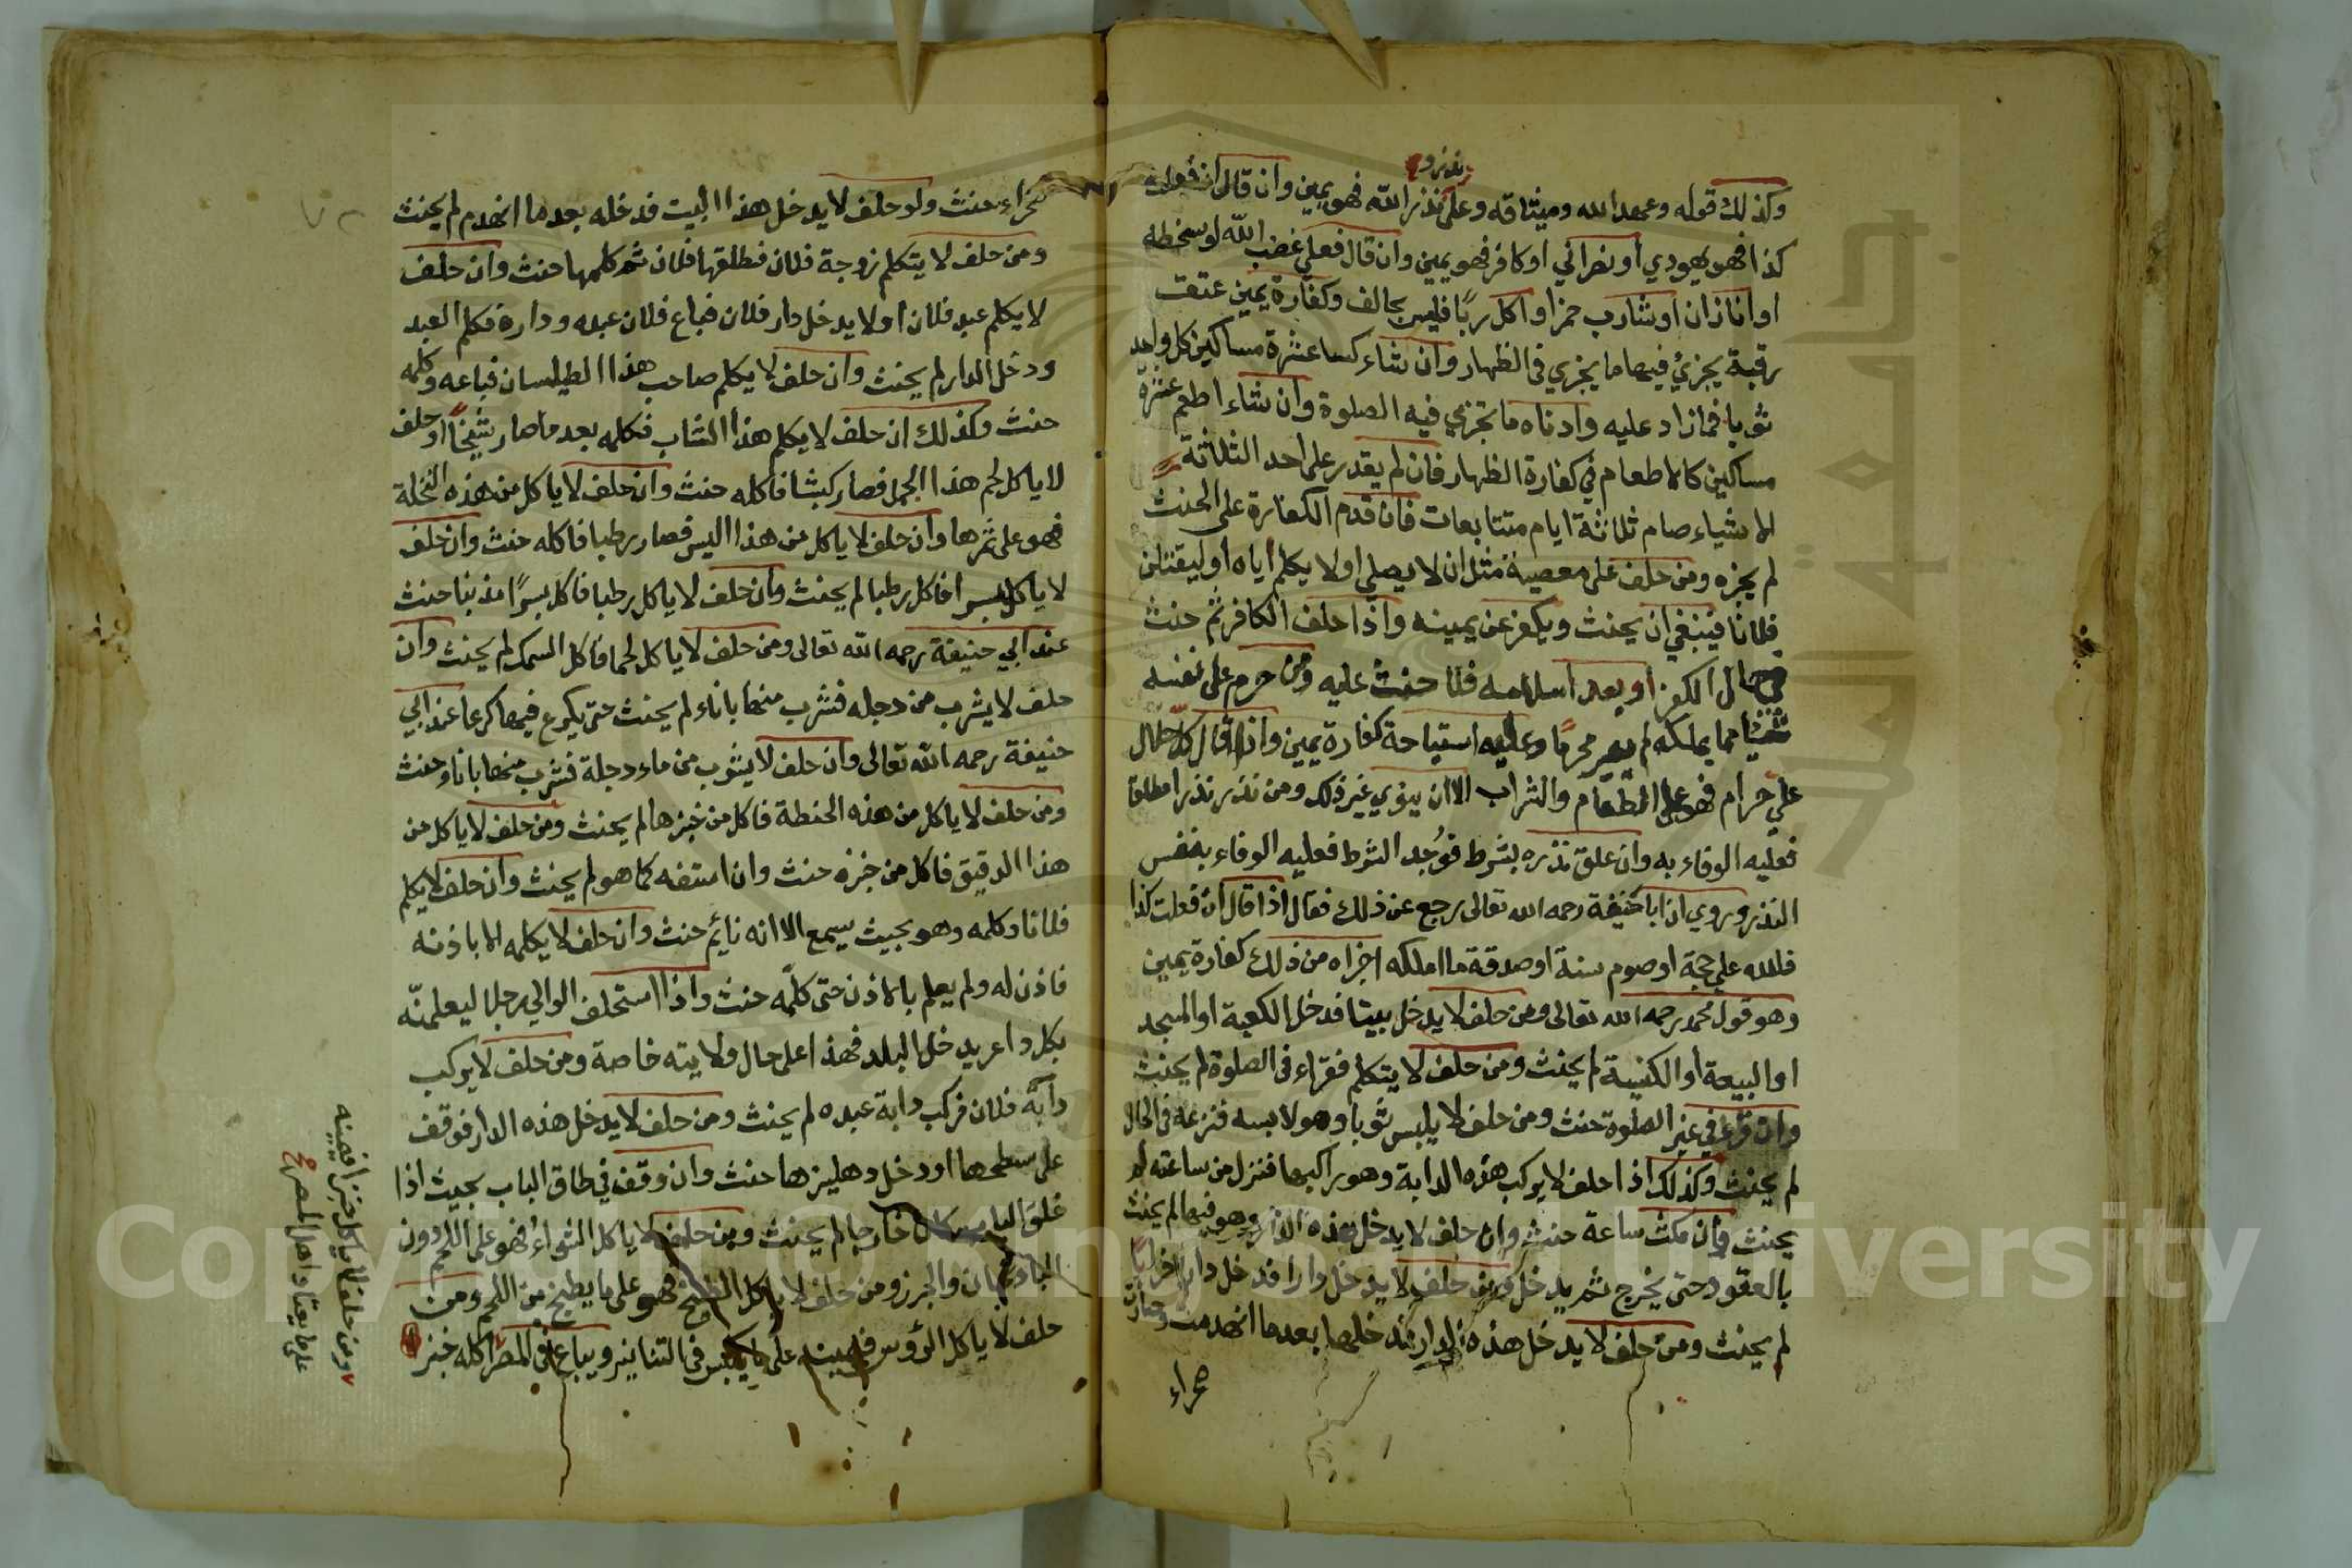 نذر و
وكذلك قوله وعهد الله وميثاقه وعلى نذر الله فهو يمين وان قال ان فعلت
كذا فهو يهودي او نصراني او كافر فهو يمين وان قال فعلي غضب الله او سخطه
او انا زان او شارب خمر او اكل ربًا فليس بحالف وكفارة يمين عتق
رقبة يجزئ فيها ما يجزي في الظهار وان شاء كسا عشرة مساكين كل واحد
ثوبا فما زاد عليه وادناه ما تجزي فيه الصلوة وان شاء اطعم عشرة
مساكين كالاطعام في كفارة الظهار فان لم يقدر على احد الثلاثة
الاشياء صام ثلاثة ايام متتابعات فان قدم الكفارة على الحنث
لم يجزه ومن حلف على معصية مثل ان لا يصلي او لا يكلم اباه او ليقتلن
فلانا فينبغي ان يحنث ويكفر عن يمينه واذا حلف الكافر ثم حنث
في حال الكفر او بعد اسلامه فلا حنث عليه ومن حرم على نفسه
شيئا مما يملكه لم يصر محرمًا وعليه استباحة كفارة يمين واذا قال كل حلال
علي حرام فهو على الطعام والشراب الا ان ينوي غير ذلك ومن نذر نذرا مطلقا
فعليه الوفاء به وان علق نذره بشرط فوُجد الشرط فعليه الوفاء بنفس
النذر وروي ان ابا حنيفة رحمه الله تعالى رجع عن ذلك فقال اذا قال ان فعلت كذا
فلله علي حجة او صوم سنة او صدقة ما املكه اجزاه من ذلك كفارة يمين
وهو قول محمد رحمه الله تعالى ومن حلف لا يدخل بيتا فدخل الكعبة او المسجد
او البيعة او الكنيسة لم يحنث ومن حلف لا يتكلم فقراء في الصلوة لم يحنث
وان قرء في غير الصلوة حنث ومن حلف لا يلبس ثوبا وهو لابسه فنزعه في الحال
لم يحنث وكذلك اذا حلف لا يركب هذه الدابة وهو راكبها فنزل من ساعته لم
يحنث وان مكث ساعة حنث وان حلف لا يدخل هذه الدار وهو فيها لم يحنث
بالعقود حتى يخرج ثم يدخل ومن حلف لا يدخل دارا فدخل دارا خرابا
لم يحنث ومن حلف لا يدخل هذه الدار فدخلها بعدما انهدمت وصارت
صحراء
صحراء حنث ولو حلف لا يدخل هذا البيت فدخله بعد ما انهدم لم يحنث
ومن حلف لا يتكلم زوجة فلان فطلقها فلان ثم كلمها حنث وان حلف
لا يكلم عبد فلان او لا يدخل دار فلان فباع فلان عبده وداره فكلم العبد
ودخل الدار لم يحنث وان حلف لا يكلم صاحب هذا الطيلسان فباعه وكلمه
حنث وكذلك ان حلف لا يكلم هذا الشاب فكلمه بعد ما صار شيخًا او حلف
لا ياكل لحم هذا الحمل فصار كبشا فاكله حنث وان حلف لا ياكل من هذه النخلة
فهو على ثمرها وان حلف لا ياكل من هذا البسر فصار رطبا فاكله حنث وان حلف
لا ياكل بسرا فاكل رطبا لم يحنث وان حلف لا ياكل رطبا فاكل بسرًا مذنبا حنث
عند ابي حنيفة رحمه الله تعالى ومن حلف لا ياكل لحما فاكل السمك لم يحنث وان
حلف لا يشرب من دجله فشرب منها باناء لم يحنث حتى يكرع فيها كرعا عند ابي
حنيفة رحمه الله تعالى وان حلف لا يشرب من ماء دجلة فشرب منها باناء حنث
ومن حلف لا ياكل من هذه الحنطة فاكل من خبزها لم يحنث ومن حلف لا ياكل من
هذا الدقيق فاكل من خبزه حنث وان استفه كما هو لم يحنث وان حلف لا يكلم
فلانا وكلمه وهو بحيث يسمع الا انه نائم حنث وان حلف لا يكلمه الا باذنه
فاذن له ولم يعلم بالاذن حتى كلّمه حنث واذا استحلف الوالي رجلا ليعلمنّه
بكل داعر يدخل البلد فهذا على حال ولايته خاصة ومن حلف لا يركب
دابّة فلان فركب دابة عبده لم يحنث ومن حلف لا يدخل هذه الدار فوقف
على سطحها او دخل دهليزها حنث وان وقف في طاق الباب بحيث اذا
غلق الباب كان خارجا لم يحنث ومن حلف لا ياكل الشواء فهو على اللحم دون
الباذنجان والجزر ومن حلف لا ياكل الطبيخ فهو على ما يطبخ من اللحم ومن
حلف لا ياكل الرؤوس فيمينه على ما يكبس في التنانير ويباع في المصر اكله خبز
ومن حلف لا ياكل خبزا فيمينه
على ما يعتاد اهل المصر صح